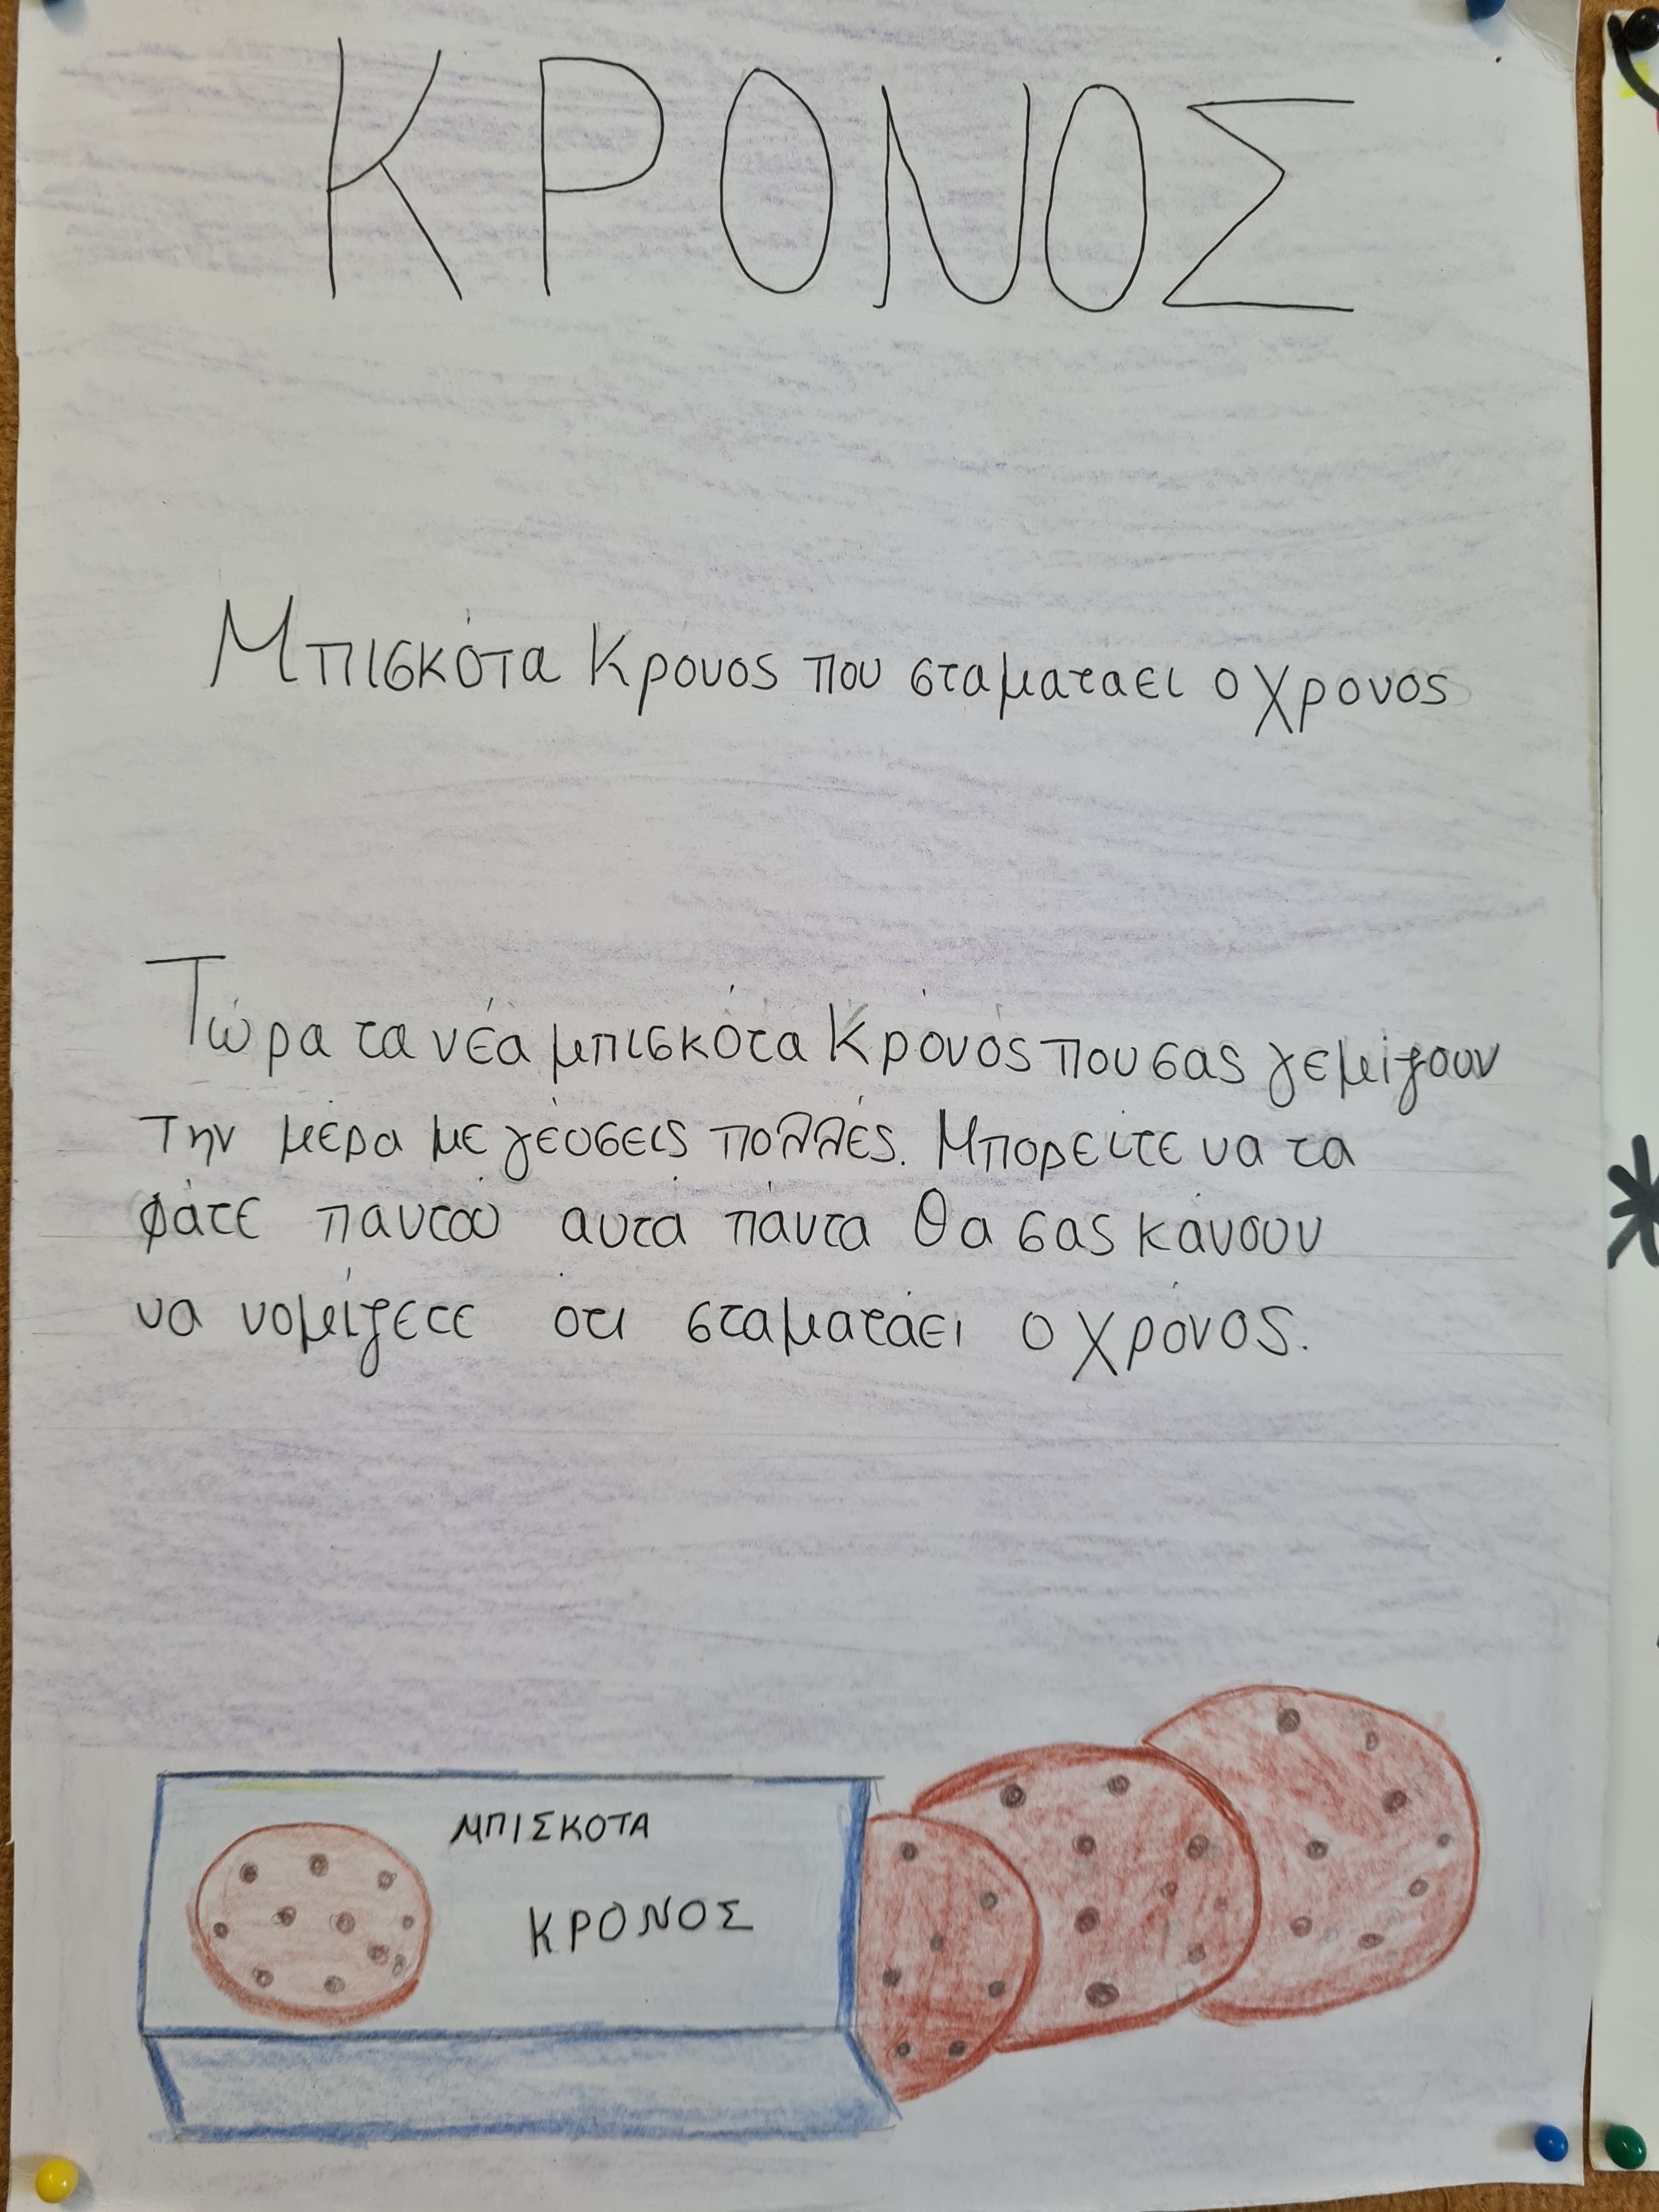 ΚΡΟΝΟΣ
Μπισκότα Κρόνος που σταματαει ο χρονος
Τώρα τα νέα μπισκότα Κρόνος που σας γεμίζουν
την μέρα με γεύσεις πολλές. Μπορείτε να τα
φάτε παντού αυτά πάντα θα σας κάνουν
να νομίζετε ότι σταματάει ο χρόνος.
ΜΠΙΣΚΟΤΑ
ΚΡΟΝΟΣ